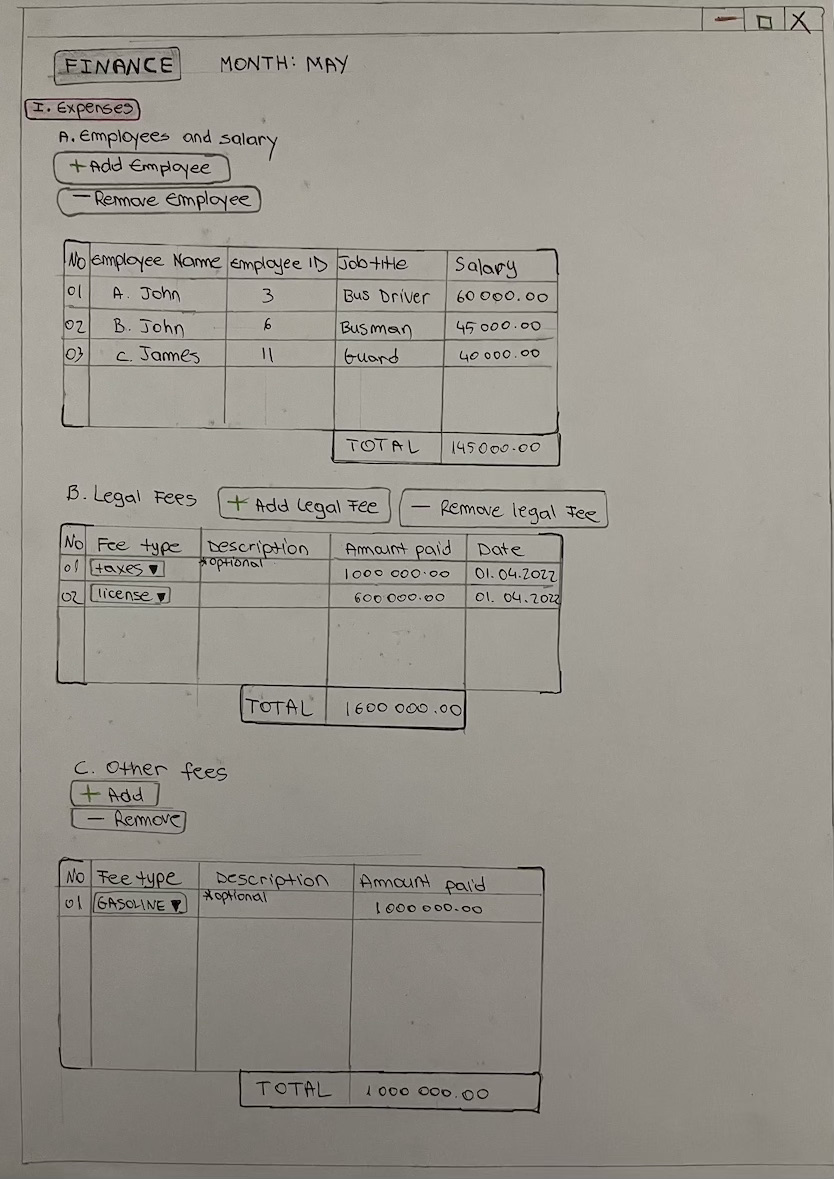 FINANCE MONTH: MAY
I. Expenses
A. Employees and salary
+ Add Employee
- Remove employee
No Employee Name Employee ID Job title Salary
01 A. John 3 Bus Driver 60 000.00
02 B. John 6 Busman 45 000.00
03 C. James 11 Guard 40 000.00
TOTAL 145000.00
B. Legal Fees + Add Legal Fee - Remove legal Fee
No Fee type Description Amount paid Date
01 taxes ▼ *optional 1000 000.00 01.04.2022
02 license ▼ 600 000.00 01.04.2022
TOTAL 1600 000.00
C. Other fees
+ Add
- Remove
No Fee type Description Amount paid
01 GASOLINE ▼ *optional 1000 000.00
TOTAL 1000 000.00